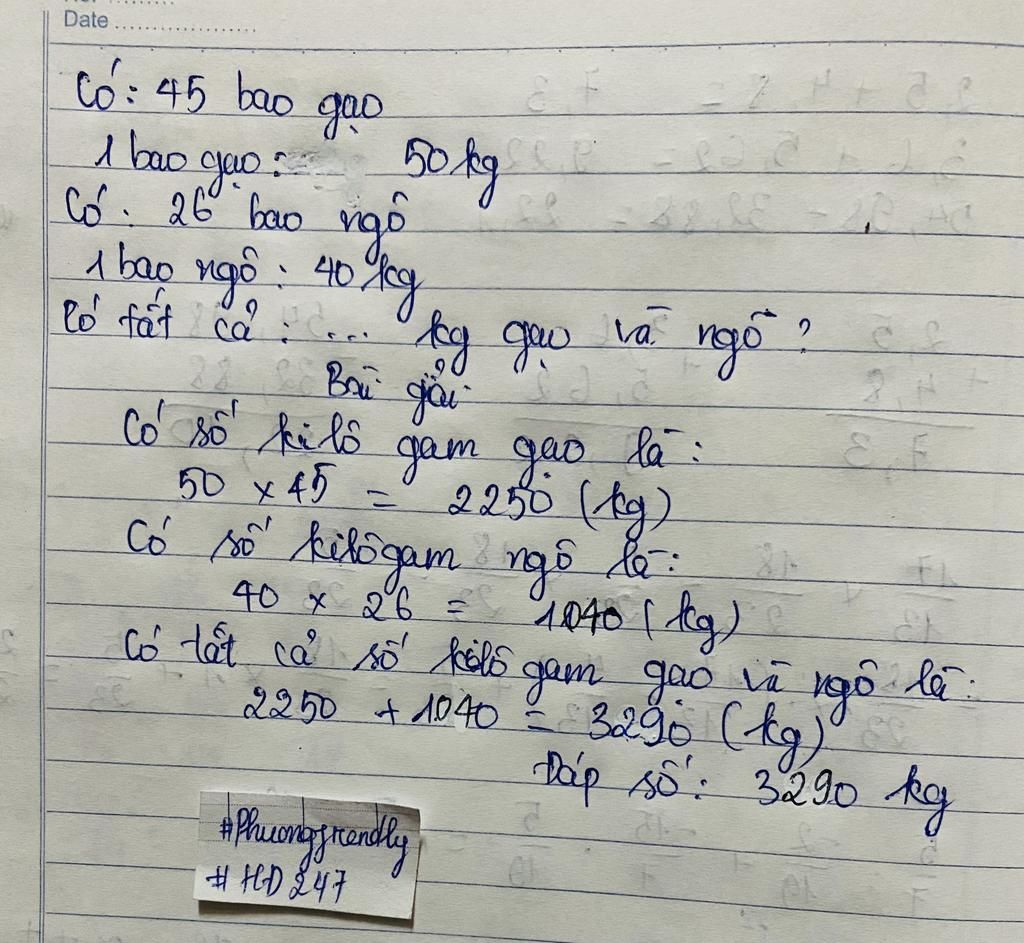 Date ....................
Có: 45 bao gạo
1 bao gạo: 50 kg
Có: 26 bao ngô
1 bao ngô: 40 kg
Có tất cả: ... kg gạo và ngô?
Bài giải
Có số kilô gam gạo là:
50 x 45 = 2250 (kg)
Có số kilôgam ngô là:
40 x 26 = 1040 (kg)
Có tất cả số kilô gam gạo và ngô là:
2250 + 1040 = 3290 (kg)
Đáp số: 3290 kg
#Phuongfrendly
#HD247